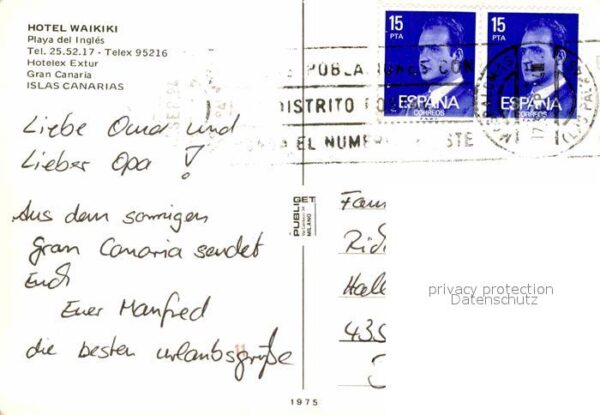 HOTEL WAIKIKI
Playa del Inglés
Tel. 25.52.17 - Telex 95216
Hotelex Extur
Gran Canaria
ISLAS CANARIAS
15
PTA
ESPAÑA
CORREOS
15
PTA
ESPAÑA
CORREOS
POBLA CON
DISTRITO PO
EL NUMER STE
Liebe Oma und
Lieber Opa!
Aus dem sonnigen
Gran Canaria sendet
Euch
Euer Manfred
die besten Urlaubsgrüße
PUBLI GET
MILANO
Fam
Hall
435
privacy protection
Datenschutz
1975